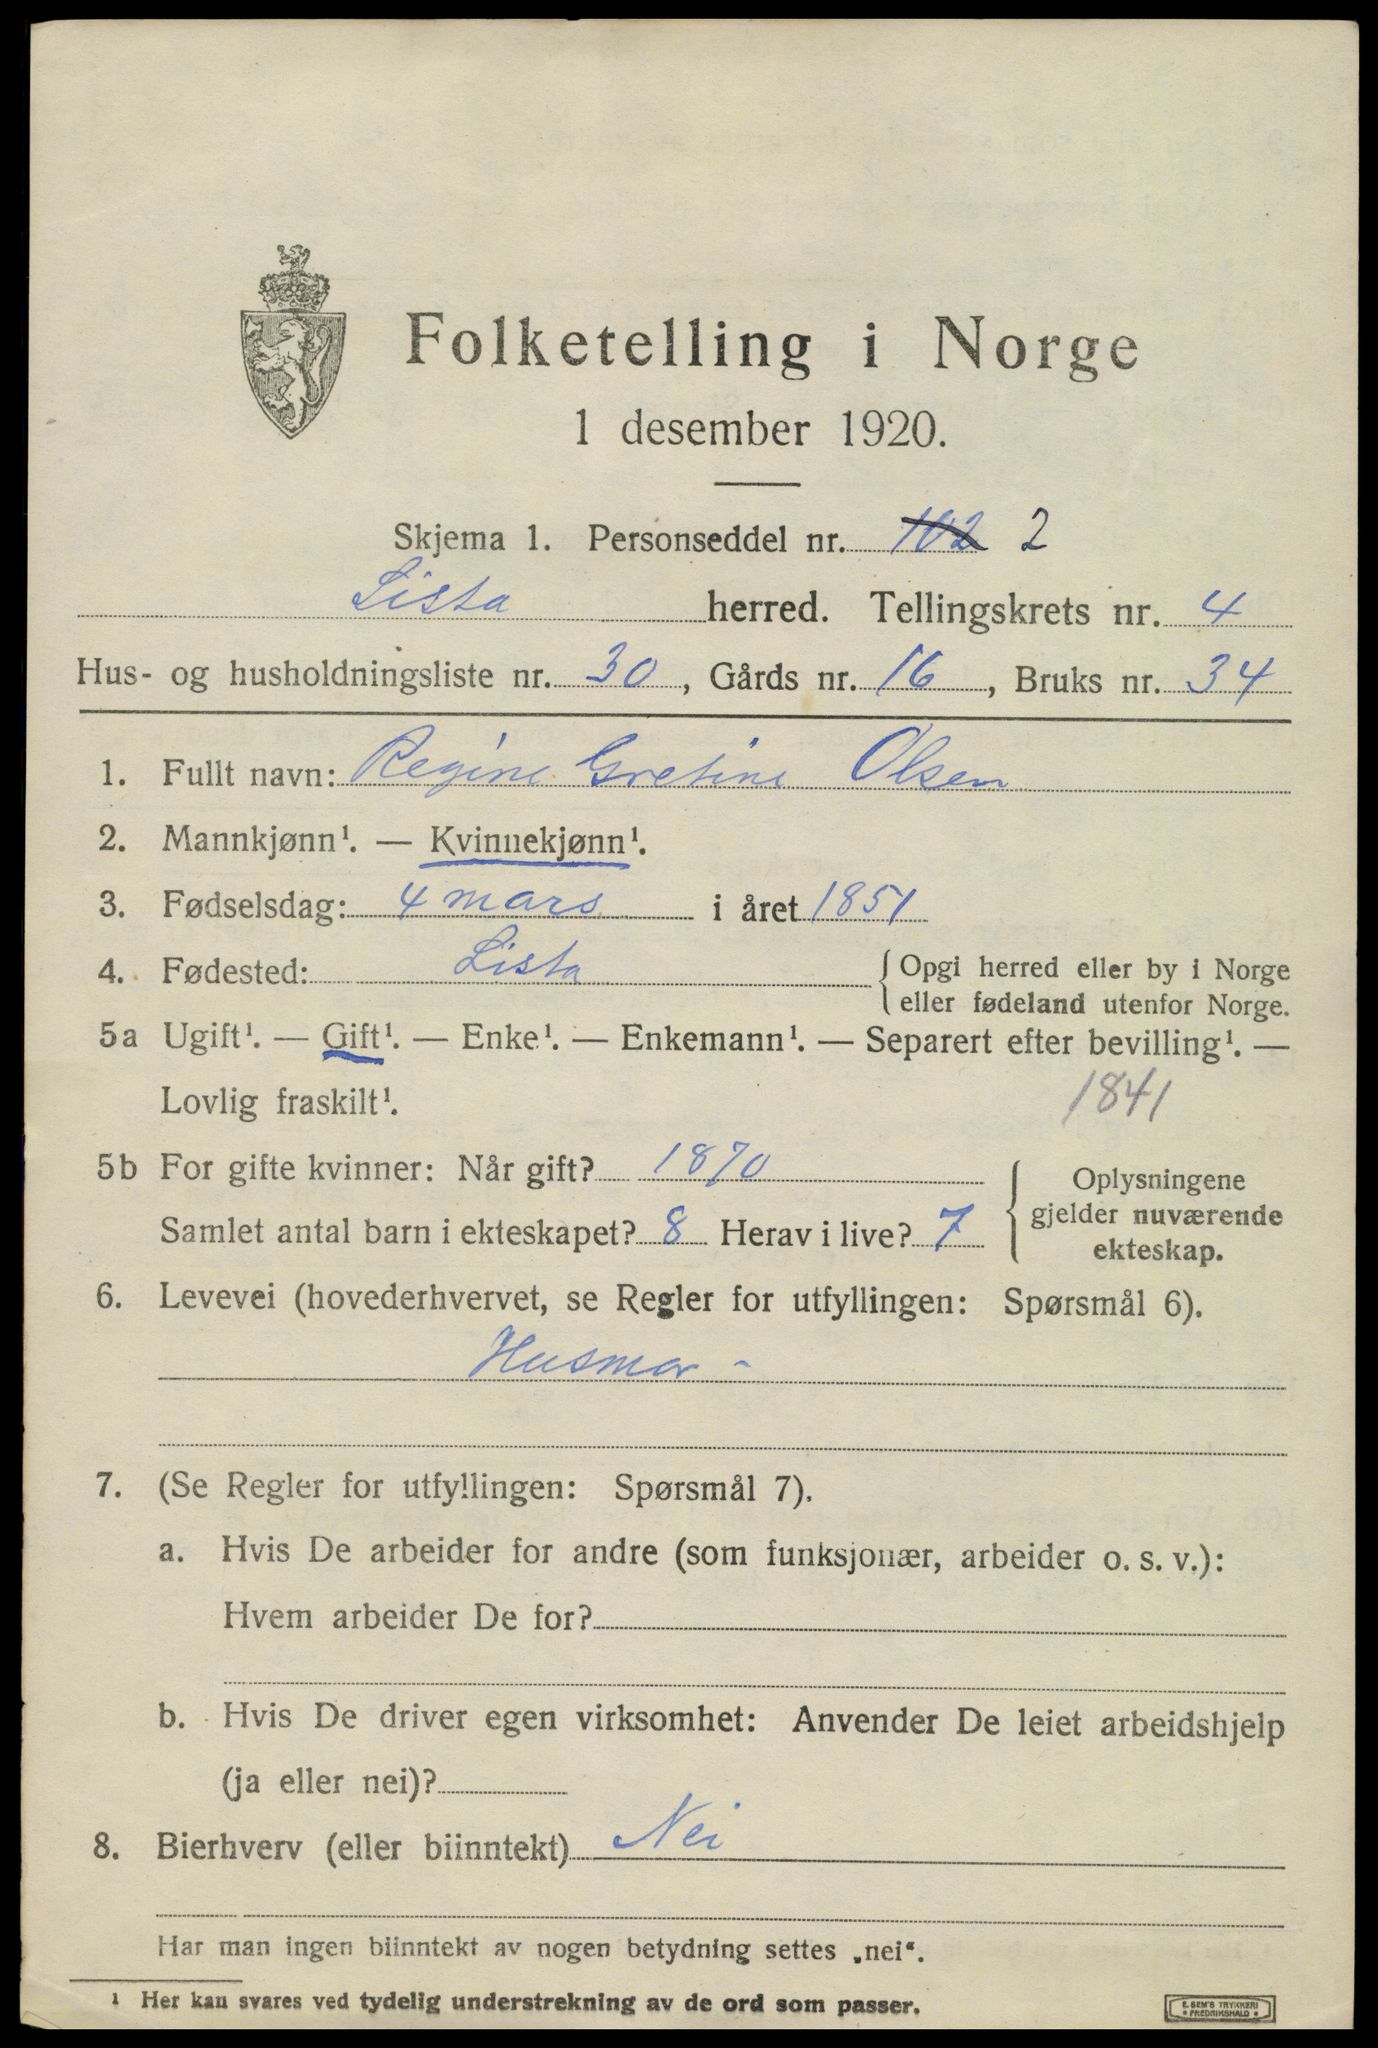 Folketelling i Norge
1 desember 1920.
Skjema 1. Personseddel nr. 102 2
Lista herred. Tellingskrets nr. 4
Hus- og husholdningsliste nr. 30, Gårds nr. 16, Bruks nr. 34
1. Fullt navn: Regine Gretine Olsen
2. Mannkjønn¹. — Kvinnekjønn¹.
3. Fødselsdag: 4 mars i året 1851
4. Fødested: Lista { Opgi herred eller by i Norge
eller fødeland utenfor Norge.
5a Ugift¹. — Gift¹. — Enke¹. — Enkemann¹. — Separert efter bevilling¹. —
Lovlig fraskilt¹. 1841
5b For gifte kvinner: Når gift? 1870
Samlet antal barn i ekteskapet? 8 Herav i live? 7
{ Oplysningene
gjelder nuværende
ekteskap.
6. Levevei (hovederhvervet, se Regler for utfyllingen: Spørsmål 6).
Husmor -
7. (Se Regler for utfyllingen: Spørsmål 7).
a. Hvis De arbeider for andre (som funksjonær, arbeider o. s. v.):
Hvem arbeider De for?
b. Hvis De driver egen virksomhet: Anvender De leiet arbeidshjelp
(ja eller nei)?
8. Bierhverv (eller biinntekt) Nei
Har man ingen biinntekt av nogen betydning settes „nei“.
¹ Her kan svares ved tydelig understrekning av de ord som passer.
E. SEM'S TRYKKERI
• FREDRIKSHALD •